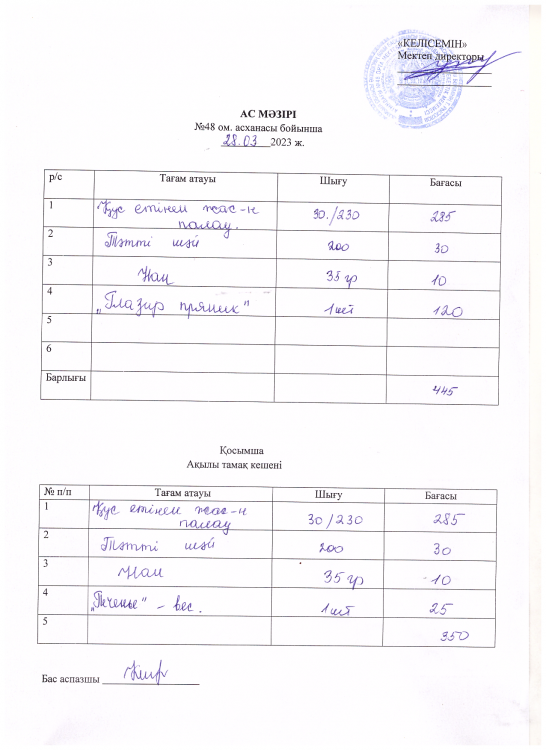 «КЕЛІСЕМІН»
Мектеп директоры
АС МӘЗІРІ
№48 ом. асханасы бойынша
28.03 2023 ж.
р/с Тағам атауы Шығу Бағасы
1 Құс етінен жас-н палау. 30./230 285
2 Тәтті шәй 200 30
3 Нан 35 гр 10
4 „Глазир пряник" 1 шт 120
5
6
Барлығы 445
Қосымша
Ақылы тамақ кешені
№ п/п Тағам атауы Шығу Бағасы
1 Құс етінен жас-н палау 30/230 285
2 Тәтті шәй 200 30
3 Нан 35 гр 10
4 „Печенье" - вес. 1 шт 25
5 350
Бас аспазшы